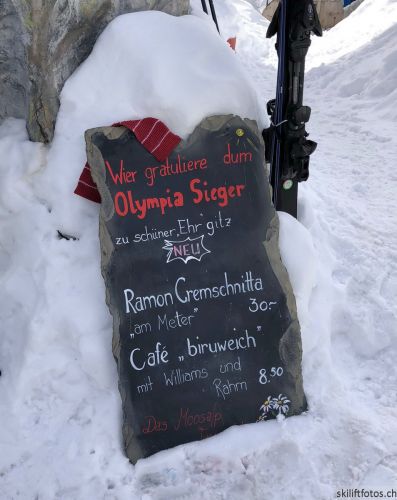 Wier gratuliere dum
Olympia Sieger
zu schiner „Ehr“gitz
NEU
Ramon Cremschnitta
„am Meter“ 30.-
Café „biruweich“
mit Williams und
Rahm 8.50
Das Moosalp
skiliftfotos.ch